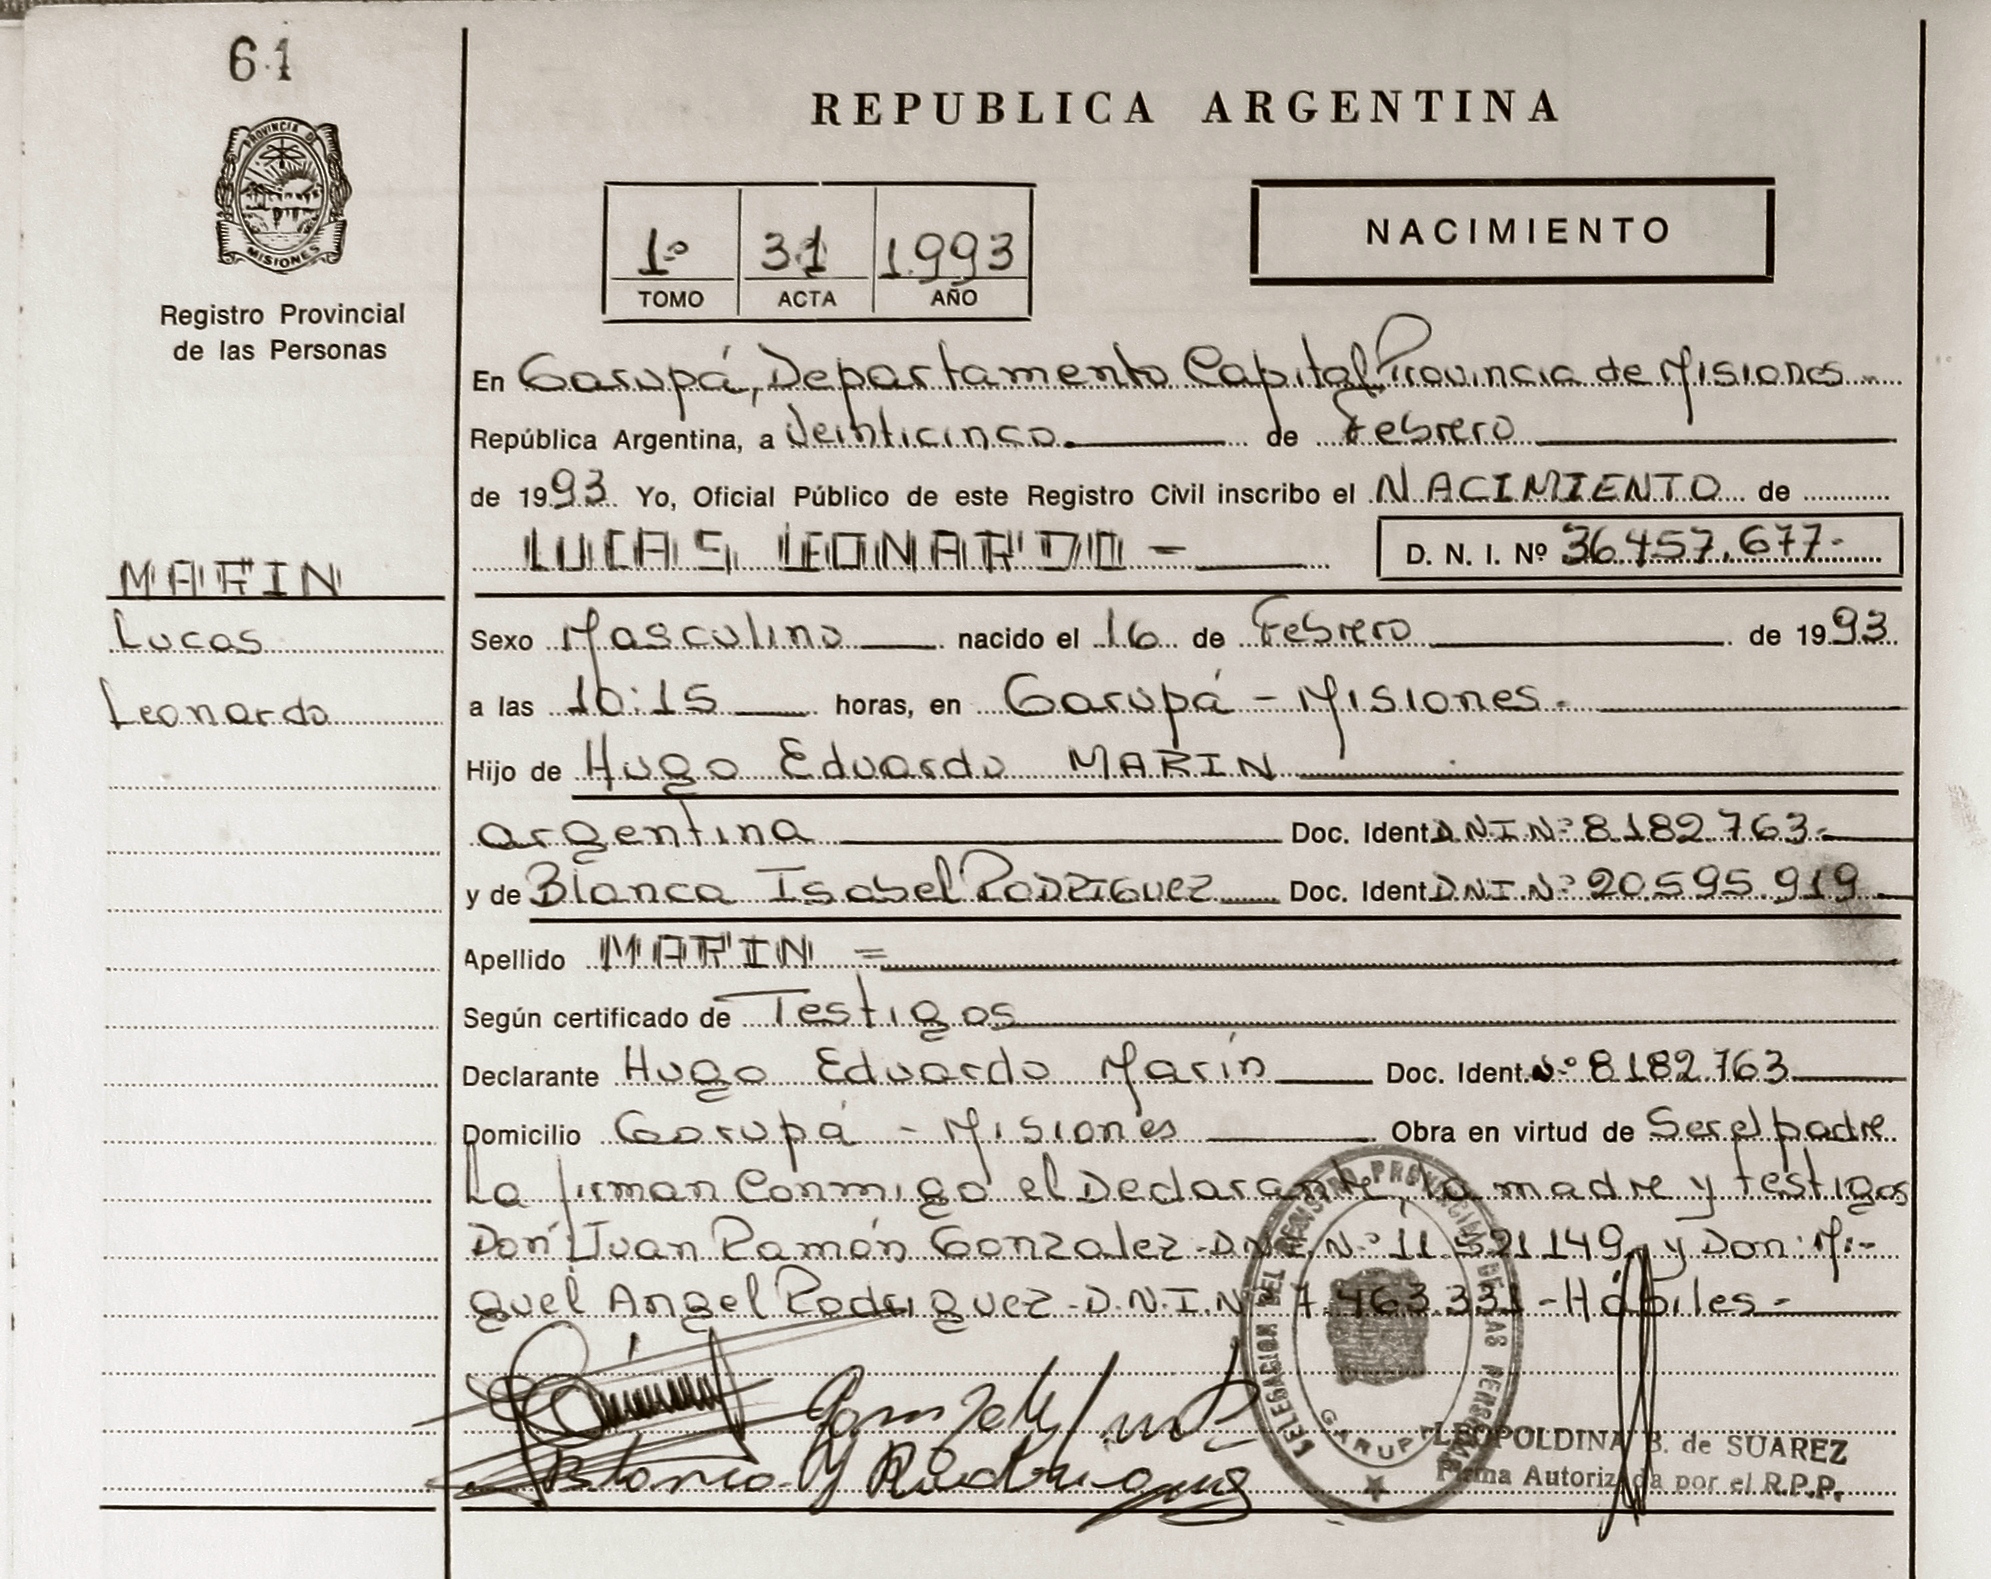 61
PROVINCIA DE
MISIONES
Registro Provincial
de las Personas
MARIN
Lucas
Leonardo
REPUBLICA ARGENTINA
1º 31 1993
TOMO ACTA AÑO
NACIMIENTO
En Garupá, Departamento Capital Provincia de Misiones
República Argentina, a Veinticinco de Febrero
de 1993 Yo, Oficial Público de este Registro Civil inscribo el NACIMIENTO de
LUCAS LEONARDO - D. N. I. Nº 36.457.677-
Sexo Masculino nacido el 16 de Febrero de 1993
a las 10:15 horas, en Garupá - Misiones.
Hijo de Hugo Eduardo MARIN
argentina Doc. Ident D.N.I.Nº 8.182.763-
y de Blanca Isabel RODRIGUEZ Doc. Ident D.N.I.Nº 20.595.919
Apellido MARIN =
Según certificado de Testigos
Declarante Hugo Eduardo Marín Doc. Ident. Nº 8.182.763
Domicilio Garupá - Misiones Obra en virtud de Ser el padre
La firman Conmigo el Declarante, la madre y testigos
Don Juan Ramón Gonzalez - D.N.I.N.º 11.521.149 y Don Mi-
guel Angel Rodriguez - D.N.I.Nº 7.463.331 - Hábiles -
Blanca Y Rodriguez
DELEGACION DEL REGISTRO PROVINCIAL DE LAS PERSONAS
GARUPA
LEOPOLDINA B. de SUAREZ
Firma Autorizada por el R.P.P.